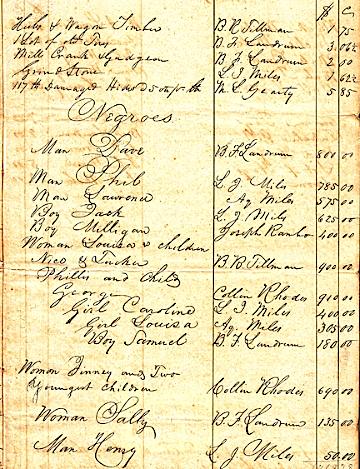 $ C
Hub & Wagon Timber B. R. Tillman 1 75
1 Lot of old B. F. Landrum 3.06¼
Mill Crank & Gudgeon B. F. Landrum 2 00
Grind Stone L. J. Miles 1.62½
117 lb Damaged Hides 5 cts pr lb 5 85
Negroes
Man Dave B F Landrum 800 00
Man Phil L. J. Miles 785.00
Man Lawrence Aq Miles 575.00
Boy Jack L. J. Miles 625 00
Boy Milligan Joseph Rambo 400.00
Woman Louisa & children
Nico & Tucker B. R Tillman 900.00
Phillis and Child Collin Rhodes 910 00
George L. J. Miles 400.00
Girl Caroline Aq. Miles 305 00
Girl Louisa B. F. Landrum 180 00
Boy Samuel
Woman Jinney and Two
Youngest Children Collin Rhodes 690.00
Woman Sally B. F. Landrum 135 00
Man Henry L. J. Miles 50.00